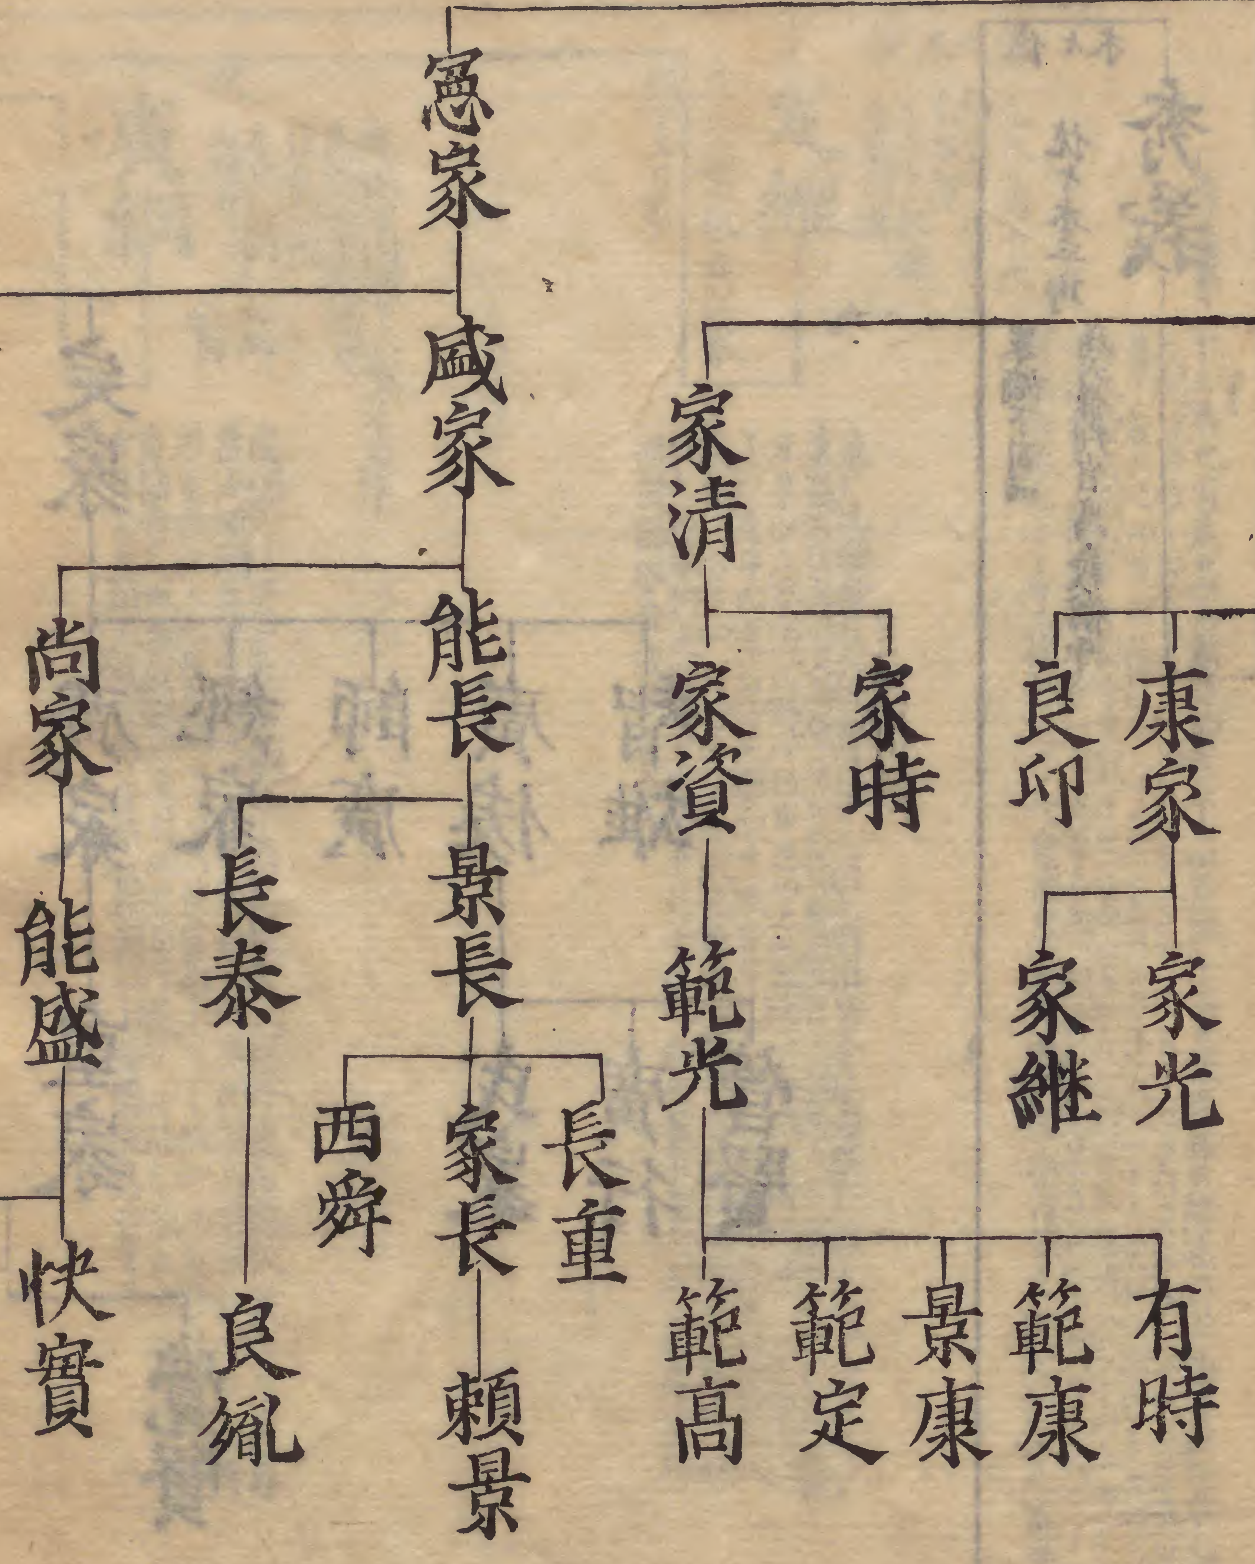 康家
良印
家光
家継
家清
家時
家資
範光
有時
範康
景康
範定
範高
憲家
盛家
能長
景長
長重
家長
西舜
頼景
長泰
良胤
尚家
能盛
快實